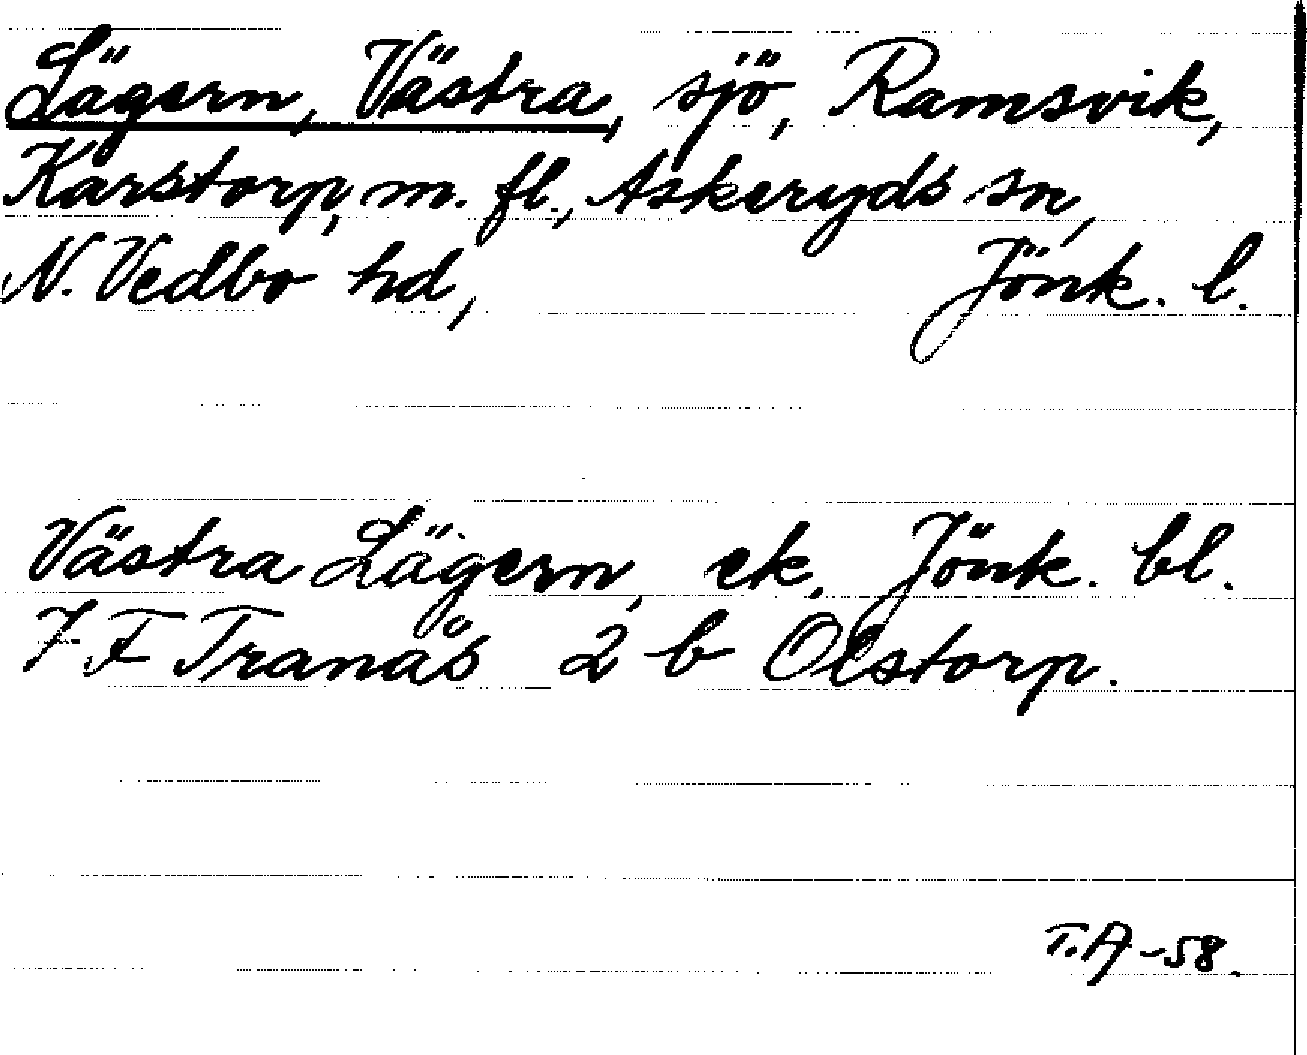 Lägern, Västra, sjö, Ramsvik,
Karstorp, m. fl., Askeryds sn,
N. Vedbo hd, Jönk. l.
Västra Lägern, ek, Jönk. bl.
7 F Tranås 2 b Olstorp.
T.A -58.